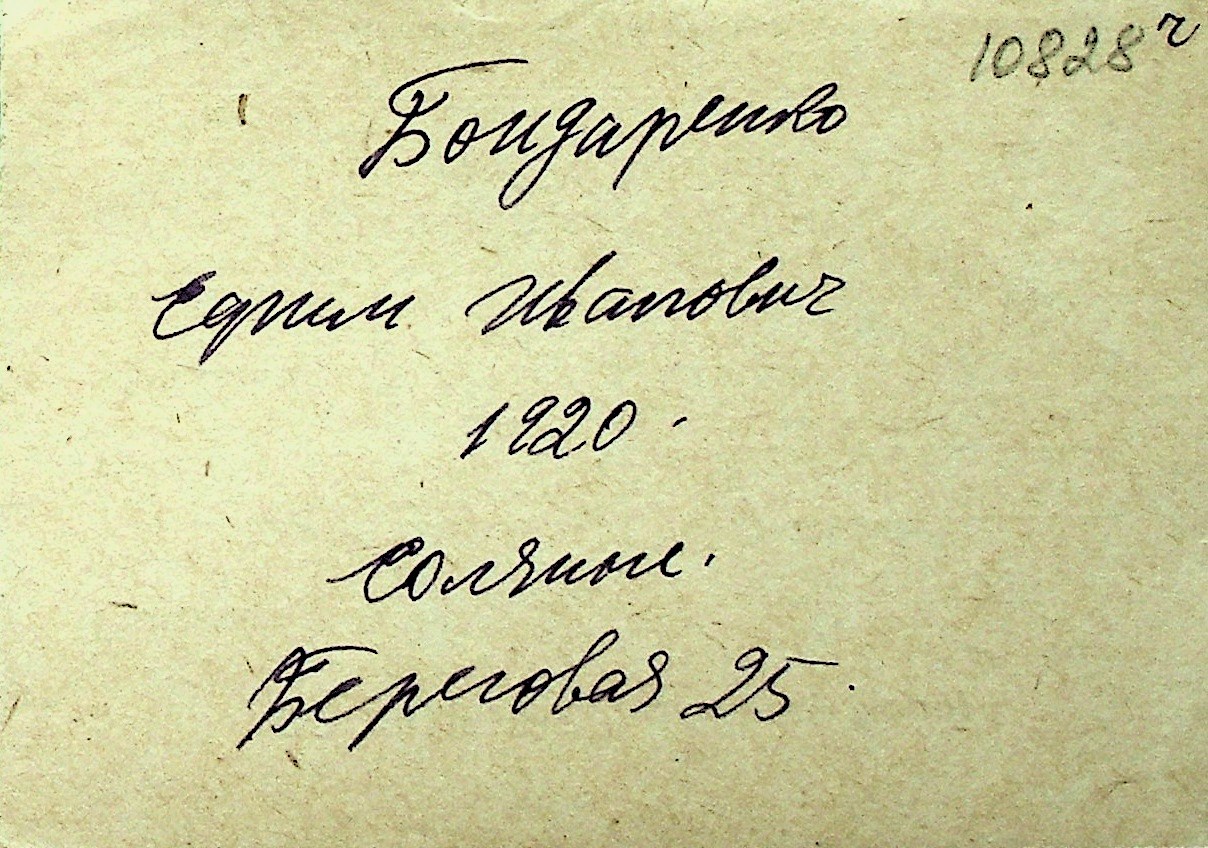 10828 ч
Бондаренко
Ефим Иванович
1920.
Соляные.
Береговая 25.